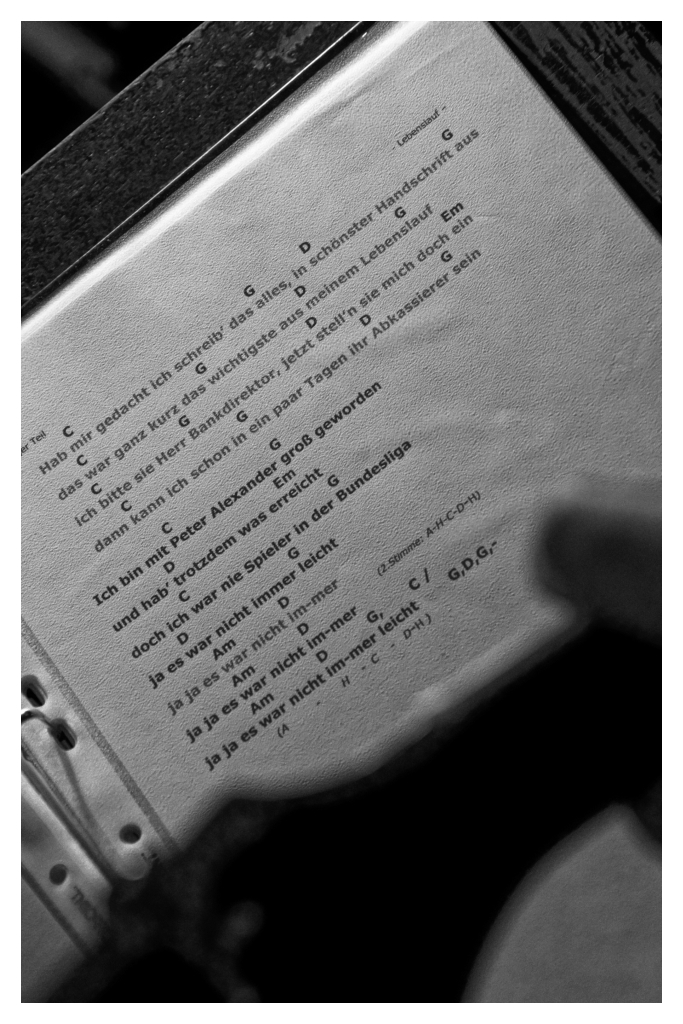 - Lebenslauf -
er Teil
C G D G
Hab mir gedacht ich schreib' das alles, in schönster Handschrift aus
C G D G
das war ganz kurz das wichtigste aus meinem Lebenslauf
C G D Em
ich bitte sie Herr Bankdirektor, jetzt stell'n sie mich doch ein
C G D G
dann kann ich schon in ein paar Tagen ihr Abkassierer sein
C G
Ich bin mit Peter Alexander groß geworden
D Em
und hab' trotzdem was erreicht
C G
doch ich war nie Spieler in der Bundesliga
D G
ja es war nicht immer leicht
Am D
ja ja es war nicht im-mer (2.Stimme: A-H-C-D-H)
Am D G, C / G,D,G,-
ja ja es war nicht im-mer
Am D
ja ja es war nicht im-mer leicht
(A - H - C - D-H )